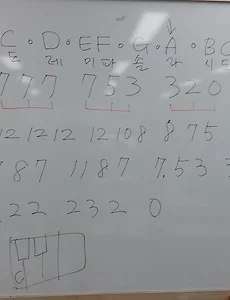 C·D·EF·G·A·BC
도 레 미파 솔 라 시도
777 753 320
1212 12108 875
787 1187 7.533
222 232 0
C